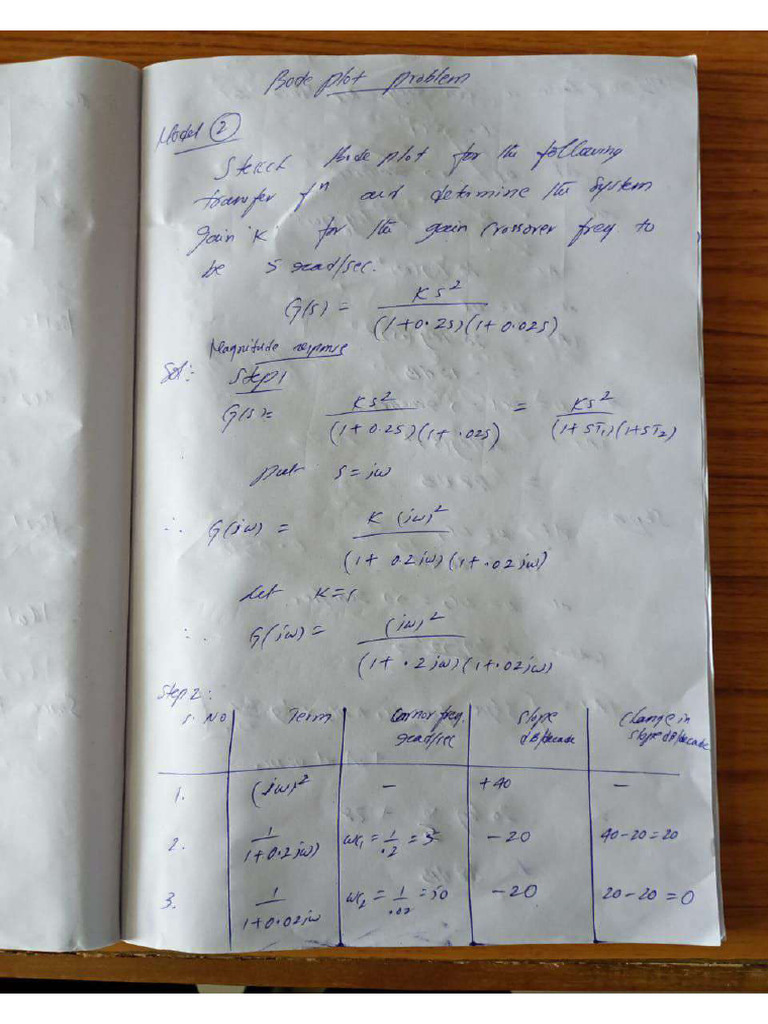 Bode plot problem
Model ②
Sketch Bode plot for the following
transfer fⁿ and determine the system
gain 'K' for the gain crossover freq to
be 5 rad/sec.
G(s) = Ks² / (1+0.2s)(1+0.02s)
Magnitude response
Sol:- Step1
G(s) = Ks² / (1+0.2s)(1+.02s) = Ks² / (1+sT₁)(1+sT₂)
put s = jω
∴ G(jω) = K (jω)² / (1+ 0.2jω)(1+.02jω)
Let K=1
∴ G(jω) = (jω)² / (1+ .2jω)(1+.02jω)
Step 2:
S. No Term Cornor freq. rad/sec Slope dB/decade Change in slope dB/decade
1. (jω)² - +40 -
2. 1 / 1+0.2jω) ωc₁ = 1/.2 = 5 -20 40-20=20
3. 1 / 1+0.02jω ωc₂ = 1/.02 = 50 -20 20-20=0